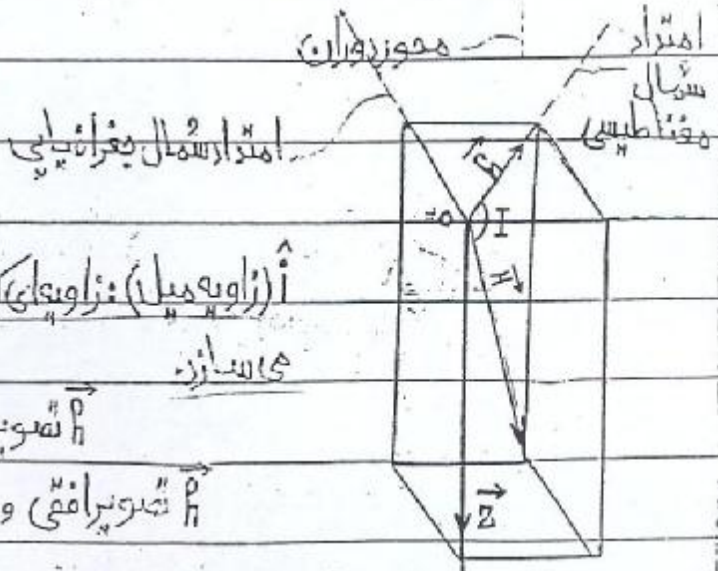 محور دوران
امتداد
شمال
مغناطیسی
امتداد شمال جغرافیایی
h
o
I
H
î (زاویه میل): زاویه‌ای
می سازد.
h تصویر
h تصویر افقی و
Z